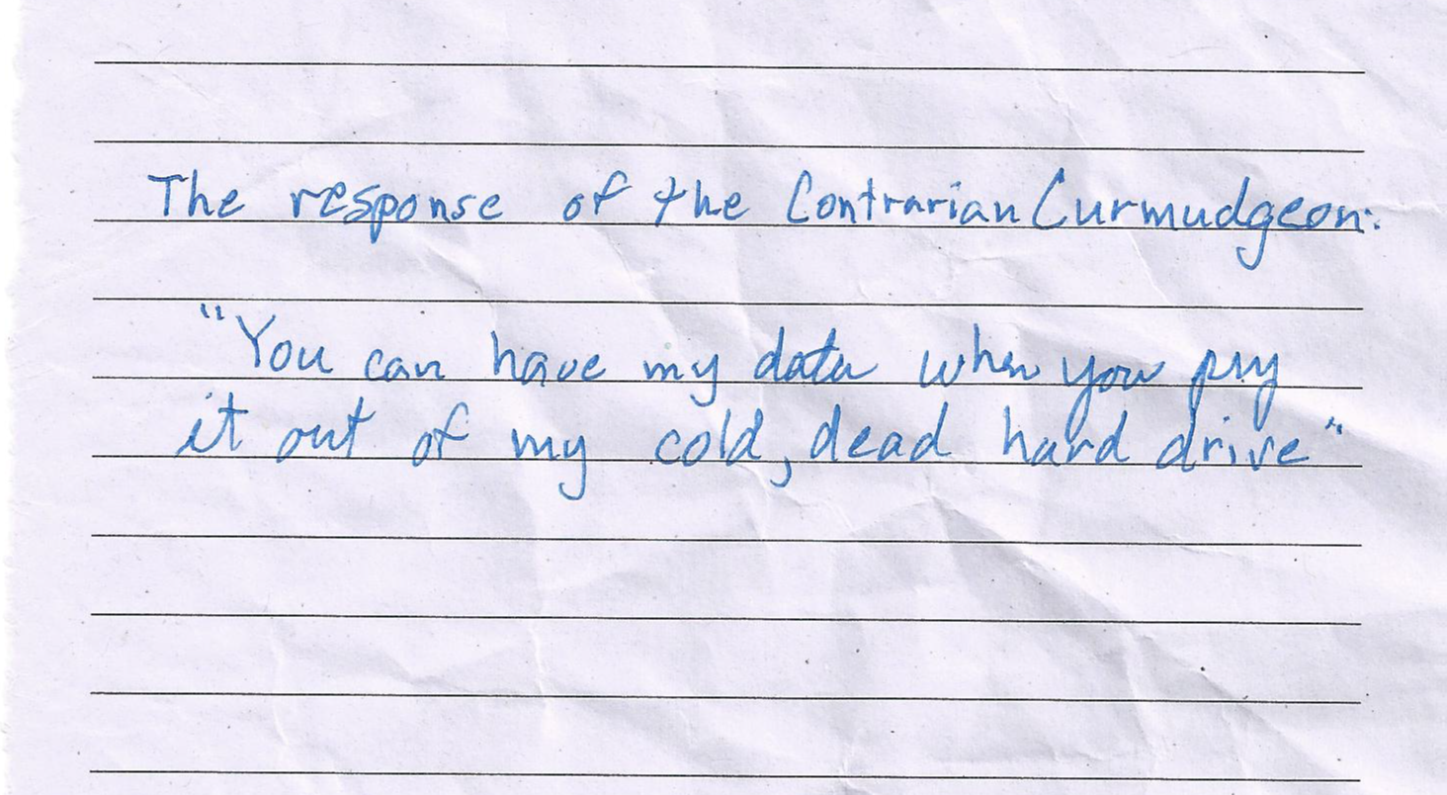 The response of the Contrarian Curmudgeon:
"You can have my data when you pry
it out of my cold, dead hard drive"